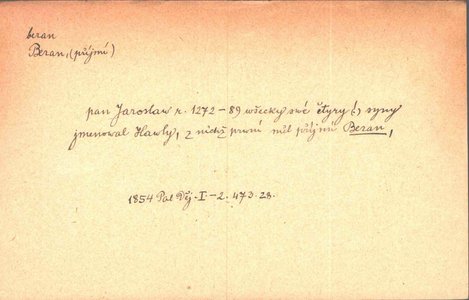 beran
Beran, (příjmí)
pan Jaroslaw r. 1272–89 wšecky swé čtyry (!) syny
jmenowal Hawly, z nichž prwní měl příjmí Beran,
1854 Pal Děj. I–2. 473. 28.